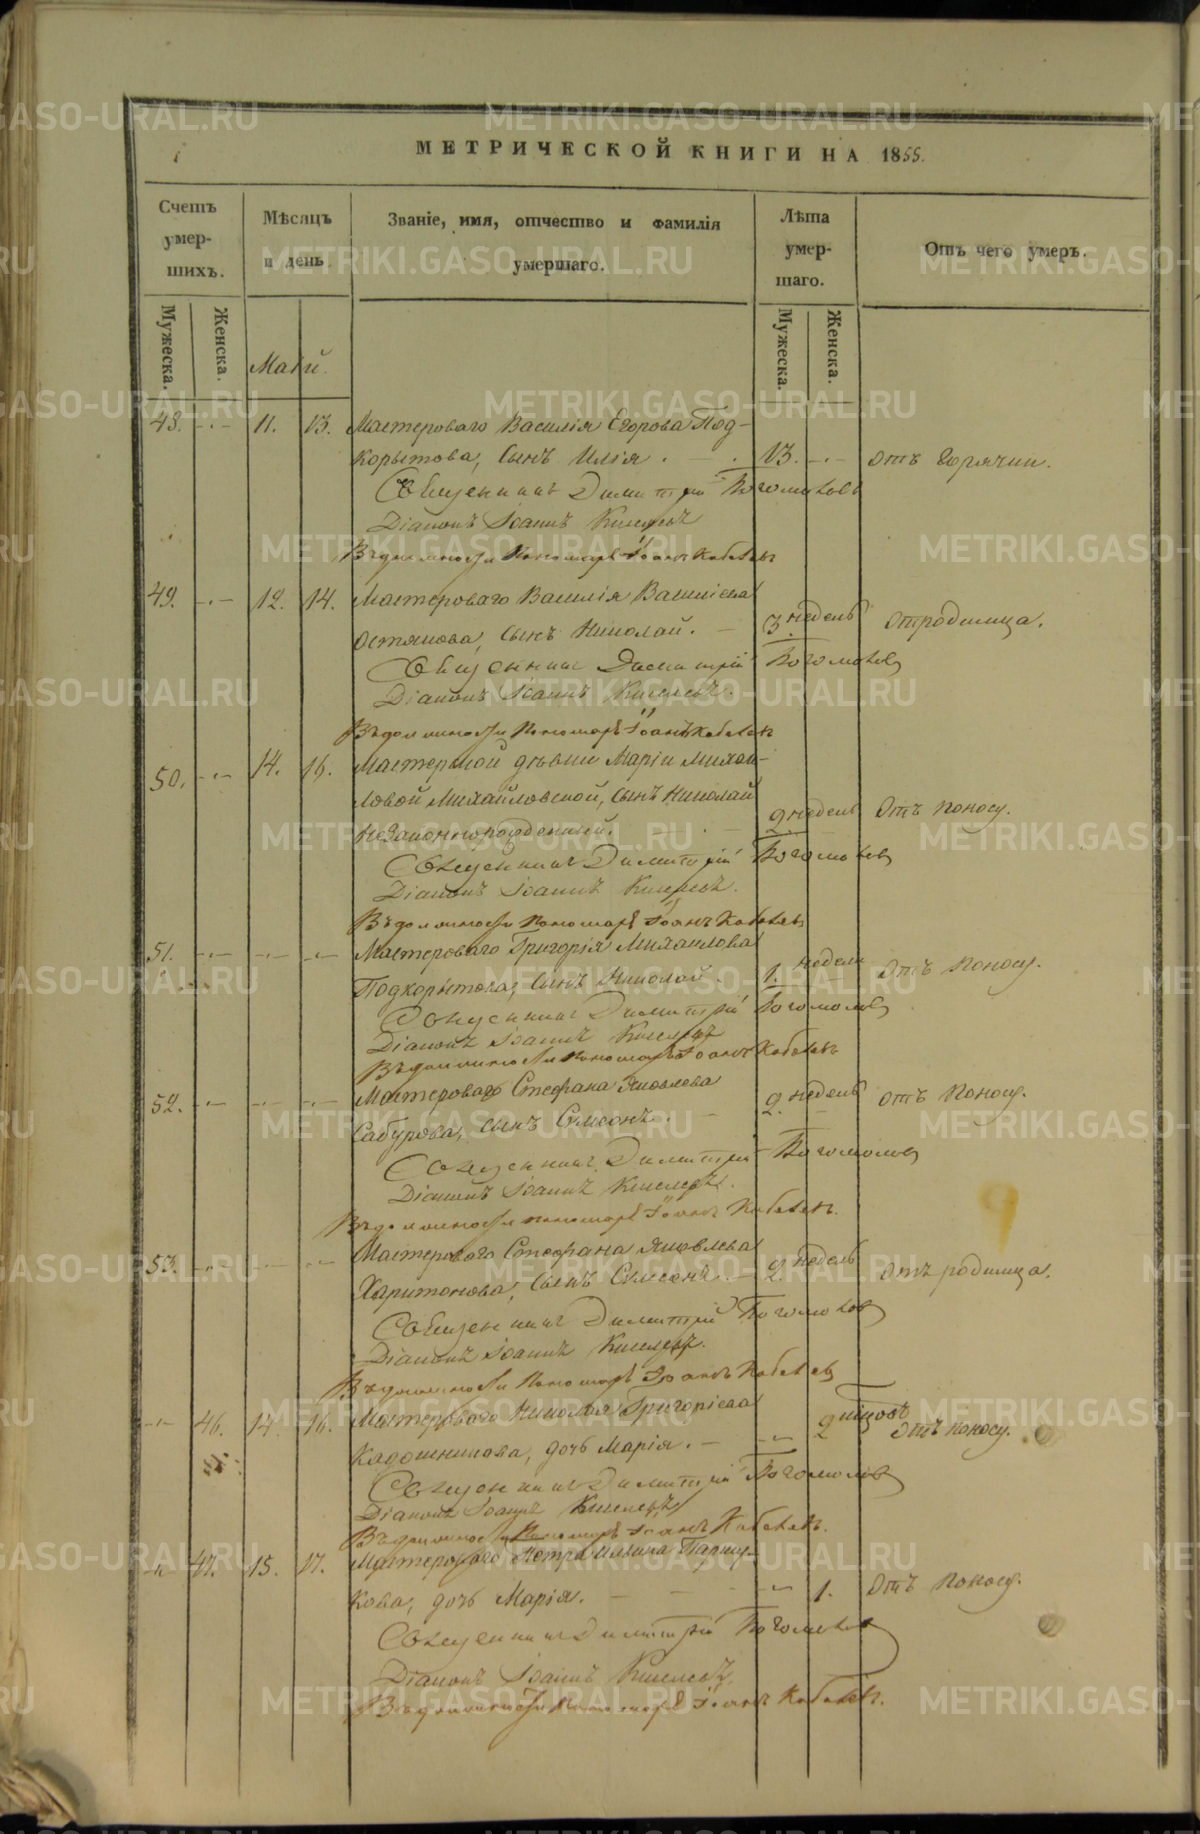 МЕТРИЧЕСКОЙ КНИГИ НА 1855.
Счетъ умершихъ.
Мѣсяцъ и день
Званіе, имя, отчество и фамилія умершаго.
Лѣта умершаго.
Отъ чего умеръ.
Мужеска. Женска.
Мужеска. Женска.
Маій.
48. 11. 13. Мастероваго Василія Егорова Под-
корытова, сынъ Илія. 13. отъ горячки.
Священникъ Димитрій Богомоловъ
Діаконъ Іоаннъ Киселевъ
Въ должности Пономаря Іоаннъ
49. 12. 14. Мастероваго Василія Василіева
Остянова, сынъ Николай. 3. недель отродимца.
Священникъ Димитрій Богомоловъ
Діаконъ Іоаннъ Киселевъ.
Въ должности Пономаря Іоаннъ
50. 14. 16. Мастерской девки Маріи Михаи-
ловой Михайловской, сынъ Николай
незаконнорожденный. 2 недель отъ поносу.
Священникъ Димитрій Богомоловъ
Діаконъ Іоаннъ Киселевъ.
Въ должности Пономаря Іоаннъ
51. Мастероваго Григорія Михаилова
Подкорытова, сынъ Николай. 1. недели отъ поносу.
Священникъ Димитрій Богомоловъ
Діаконъ Іоаннъ Киселевъ
Въ должности Пономаря Іоаннъ
52. Мастероваго Стефана Яковлева
Сабурова, сынъ Симеонъ. 2. недель отъ поносу.
Священникъ Димитрій Богомоловъ
Діаконъ Іоаннъ Киселевъ.
Въ должности пономаря Іоаннъ
53. Мастероваго Стефана Яковлева
Харитонова, сынъ Симеонъ. 2. недель отъ родимца.
Священникъ Димитрій Богомоловъ
Діаконъ Іоаннъ Киселевъ.
Въ должности Пономаря Іоаннъ
46. 14. 16. Мастероваго Николая Григоріева
Кадошникова, дочь Марія. 2 отъ поносу.
Священникъ Димитрій Богомоловъ
Діаконъ Іоаннъ Киселевъ
Въ должности Пономаря Іоаннъ
47. 15. 17. Мастероваго Петра Ильина
кова, дочь Марія. 1. отъ поносу.
Священникъ Димитрій Богомоловъ
Діаконъ Іоаннъ Киселевъ
Въ должности Пономаря Іоаннъ
METRIKI.GASO-URAL.RU